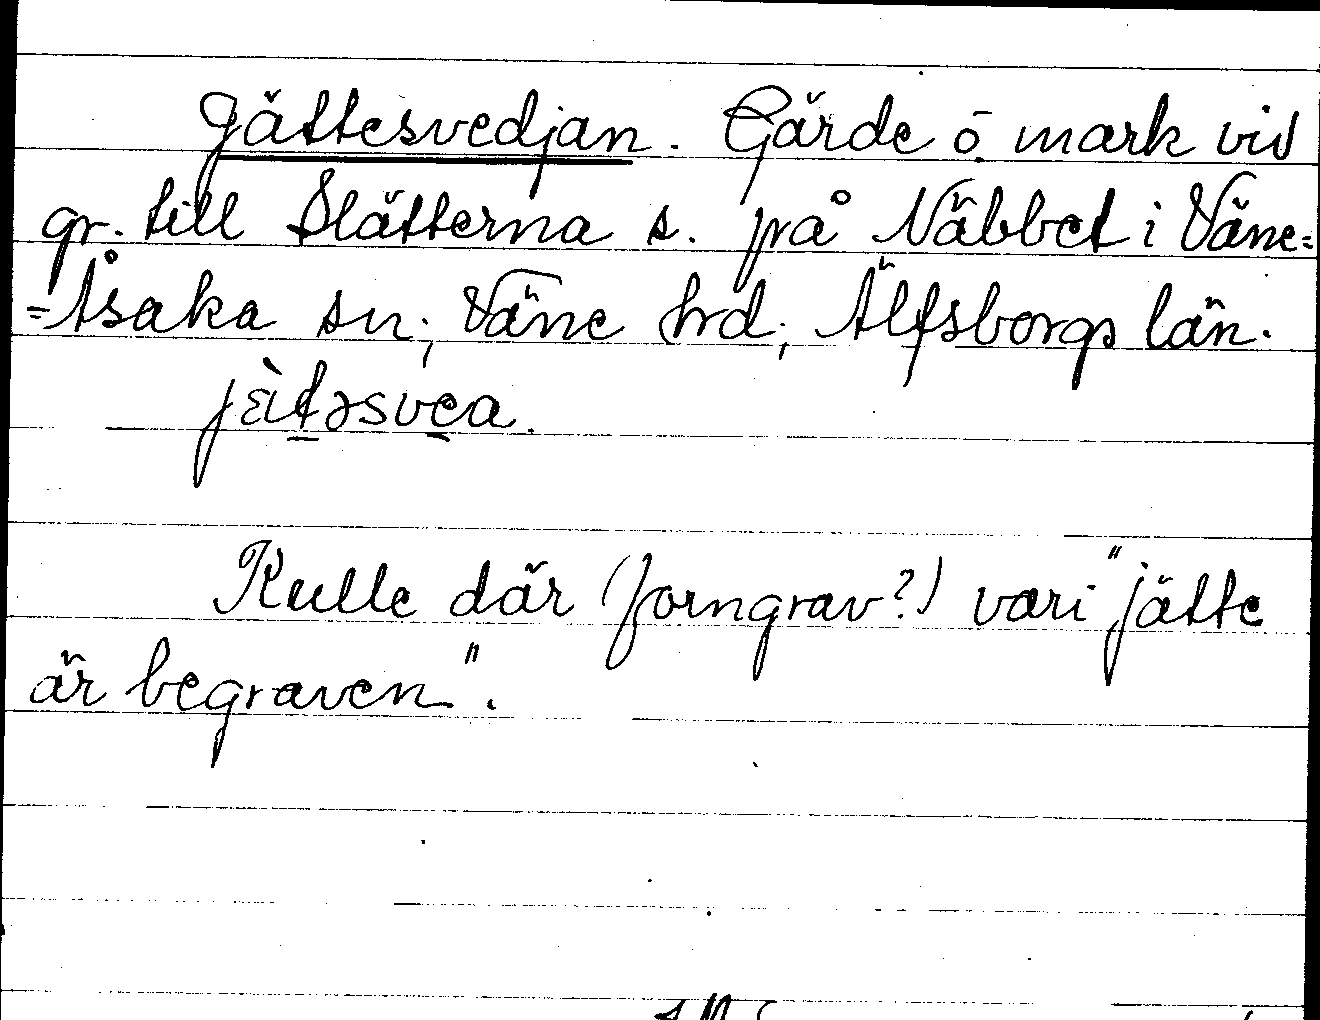 Jättesvedjan. Gärde o. mark vid
gr. till Slätterna s. på Näbbet i Väne-
-Åsaka sn; Väne hrd; Älfsborgs län.
jɛ̀təsvea.
Kulle där (forngrav?) vari "jätte
är begraven".